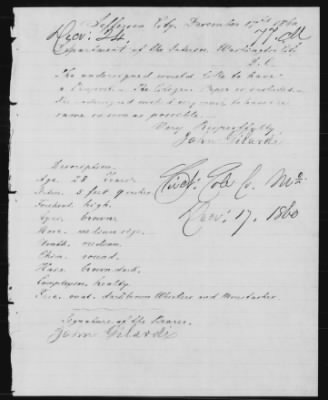 Jefferson City, December 17th 1860
Recv. 24. M
Department of the Interior, Washington City
D. C.
The undersigned would like to have
a The Citizen Paper or
The undersigned would very much to have the
same as soon as possible.
Very Respectfully
John Gilardi
Description.
Age, 28 Years
5 feet 9 inches
Forehead, high.
Eyes, brown
Nose, medium size.
Mouth, medium.
Chin, round.
Hare, brown dark.
Complexion, healthy.
Face, oval, dark brown Whiskers and Moustaches
Cole Co. Mo
17. 1860
Signature of the Bearer.
John Gilardi